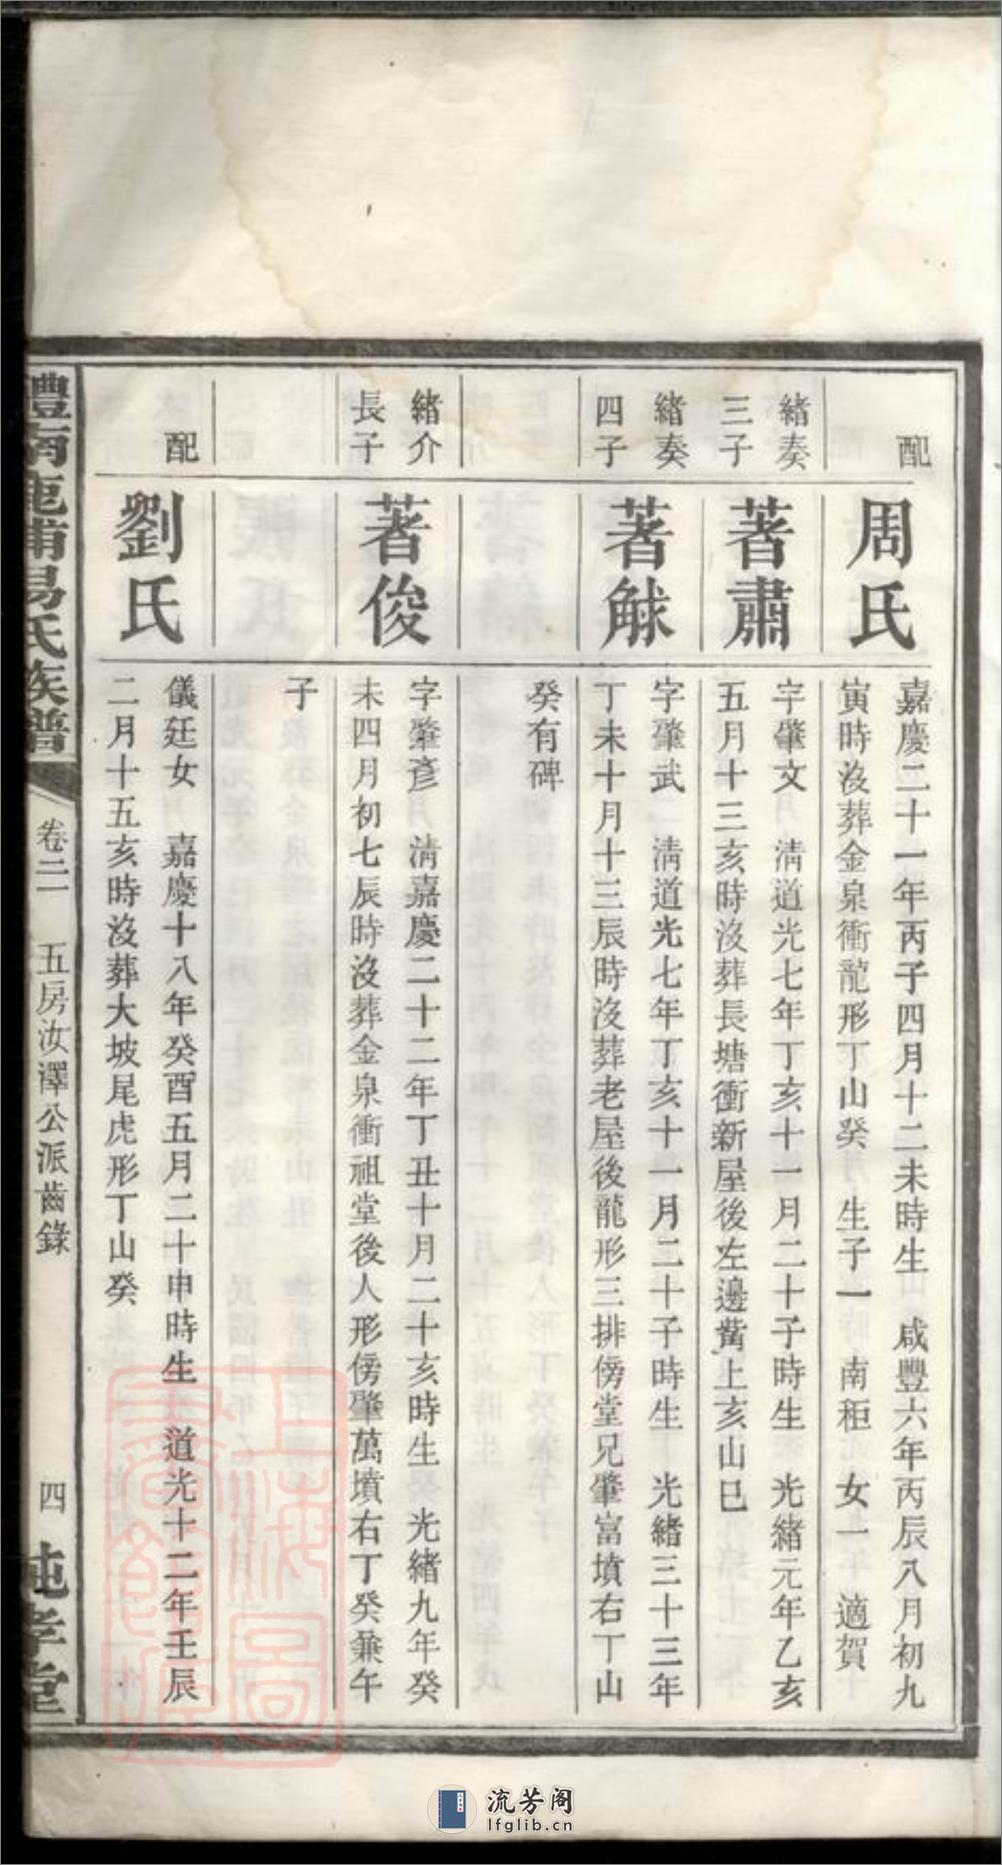 配
周氏
嘉慶二十一年丙子四月十二未時生 咸豐六年丙辰八月初九
寅時沒葬金泉衝龍形丁山癸 生子一 南秬 女一 適賀
緒奏
三子
著肅
字肇文 淸道光七年丁亥十一月二十子時生 光緒元年乙亥
五月十三亥時沒葬長塘衝新屋後左邊嘴上亥山巳
緒奏
四子
著
字肇武 淸道光七年丁亥十一月二十子時生 光緒三十三年
丁未十月十三辰時沒葬老屋後龍形三排傍堂兄肇富墳右丁山
癸有碑
緒介
長子
著俊
字肇彥 淸嘉慶二十二年丁丑十月二十亥時生 光緒九年癸
未四月初七辰時沒葬金泉衝祖堂後人形傍肇萬墳右丁癸兼午
子
配
劉氏
儀廷女 嘉慶十八年癸酉五月二十申時生 道光十二年壬辰
二月十五亥時沒葬大坡尾虎形丁山癸
醴南龍浦易氏族譜
卷二一 五房汝澤公派齒錄
四
純孝堂
流芳阁
lfglib.cn